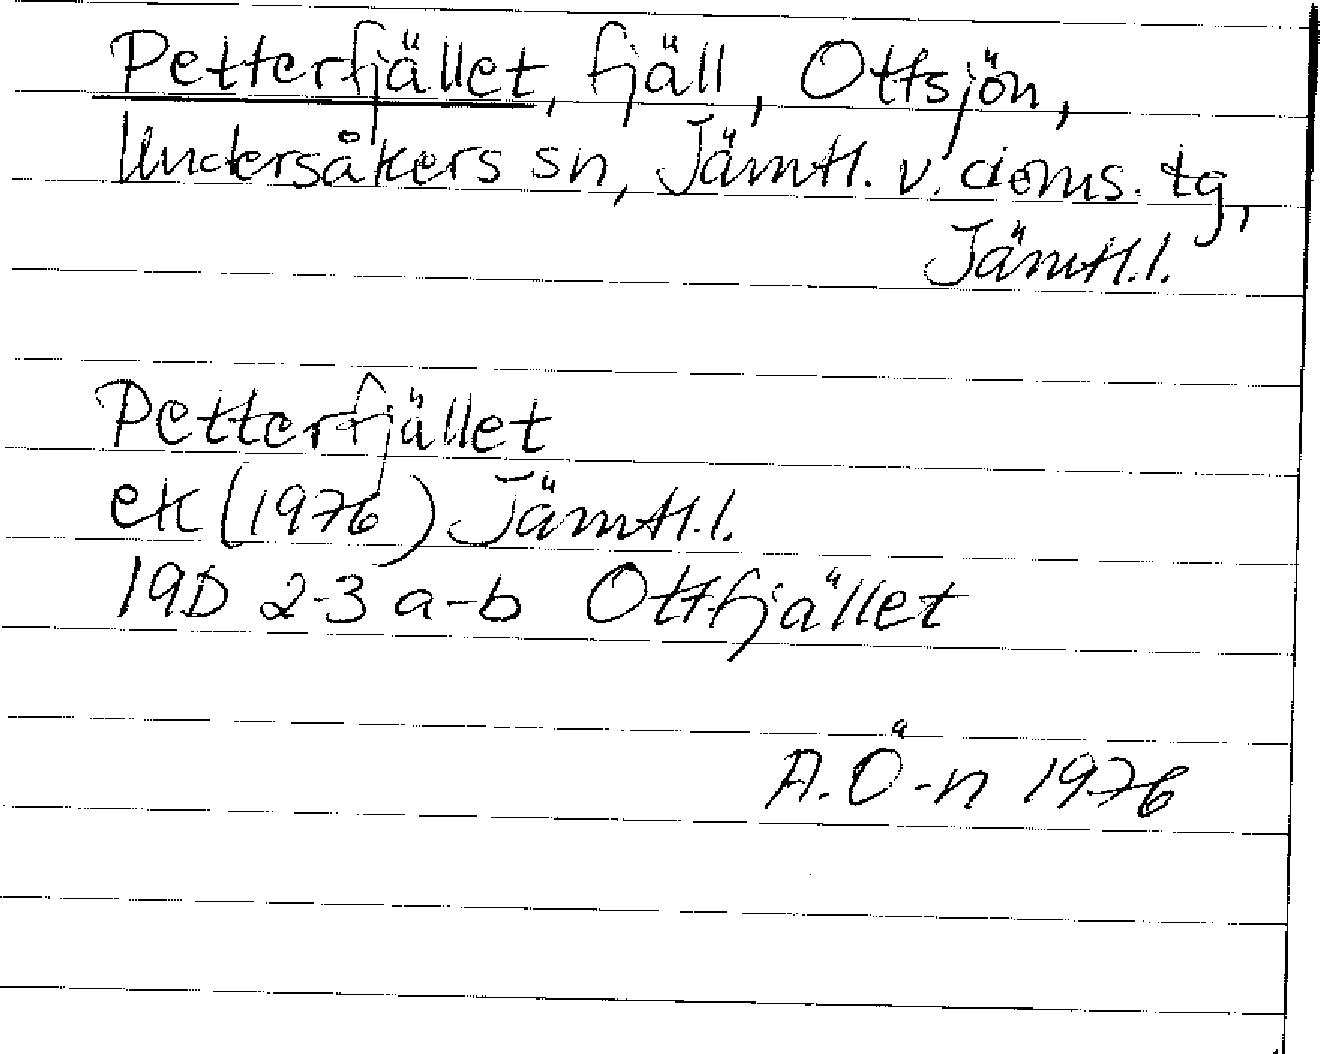 Petterfjället, fjäll, Ottsjön,
Undersåkers sn, Jämtl. v. doms. tg,
Jämtl.l.
Petterfjället
ek (1976) Jämtl.l.
19D 2-3 a-b Ottfjället
A.Ö-n 1976